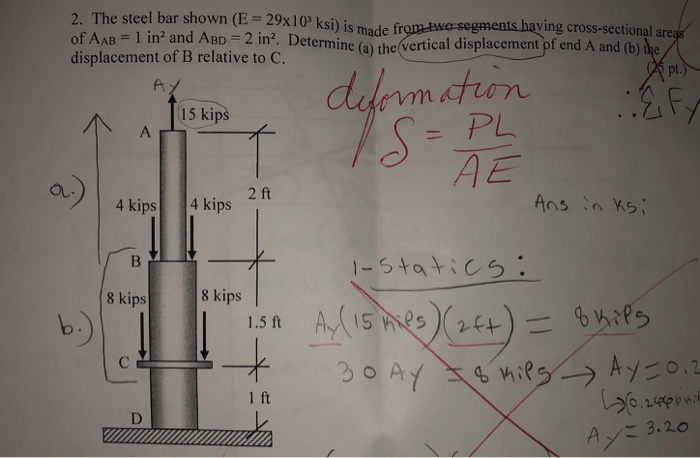 2. The steel bar shown (E = 29x10³ ksi) is made from two segments having cross-sectional areas
of AAB = 1 in² and ABD = 2 in². Determine (a) the vertical displacement of end A and (b) the
displacement of B relative to C.
(25 pt.)
Ay
deformation
∴ΣFy
15 kips
A
δ = PL
AE
a.)
2 ft
4 kips
4 kips
Ans in ksi
B
1-Statics:
8 kips
8 kips
b.)
1.5 ft
Ay(15 kips)(2ft) = 8 kips
C
30 Ay = 8 kips → Ay=0.2
1 ft
D
Ay = 3.20